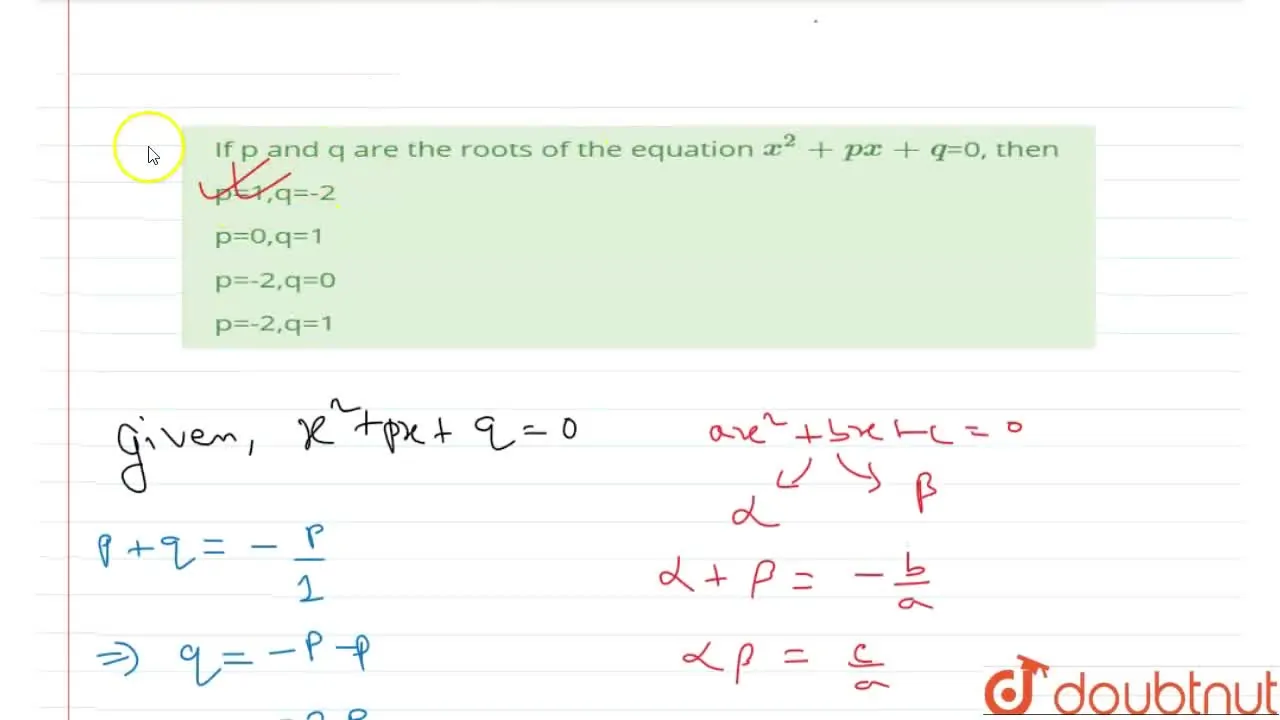 If p and q are the roots of the equation x² + px + q=0, then
p=1,q=-2
p=0,q=1
p=-2,q=0
p=-2,q=1
given, x²+px+ q = 0
ax² + bx + c = 0
α β
p + q = - p/1
α + β = - b/a
⇒ q = - p - p
αβ = c/a
doubtnut